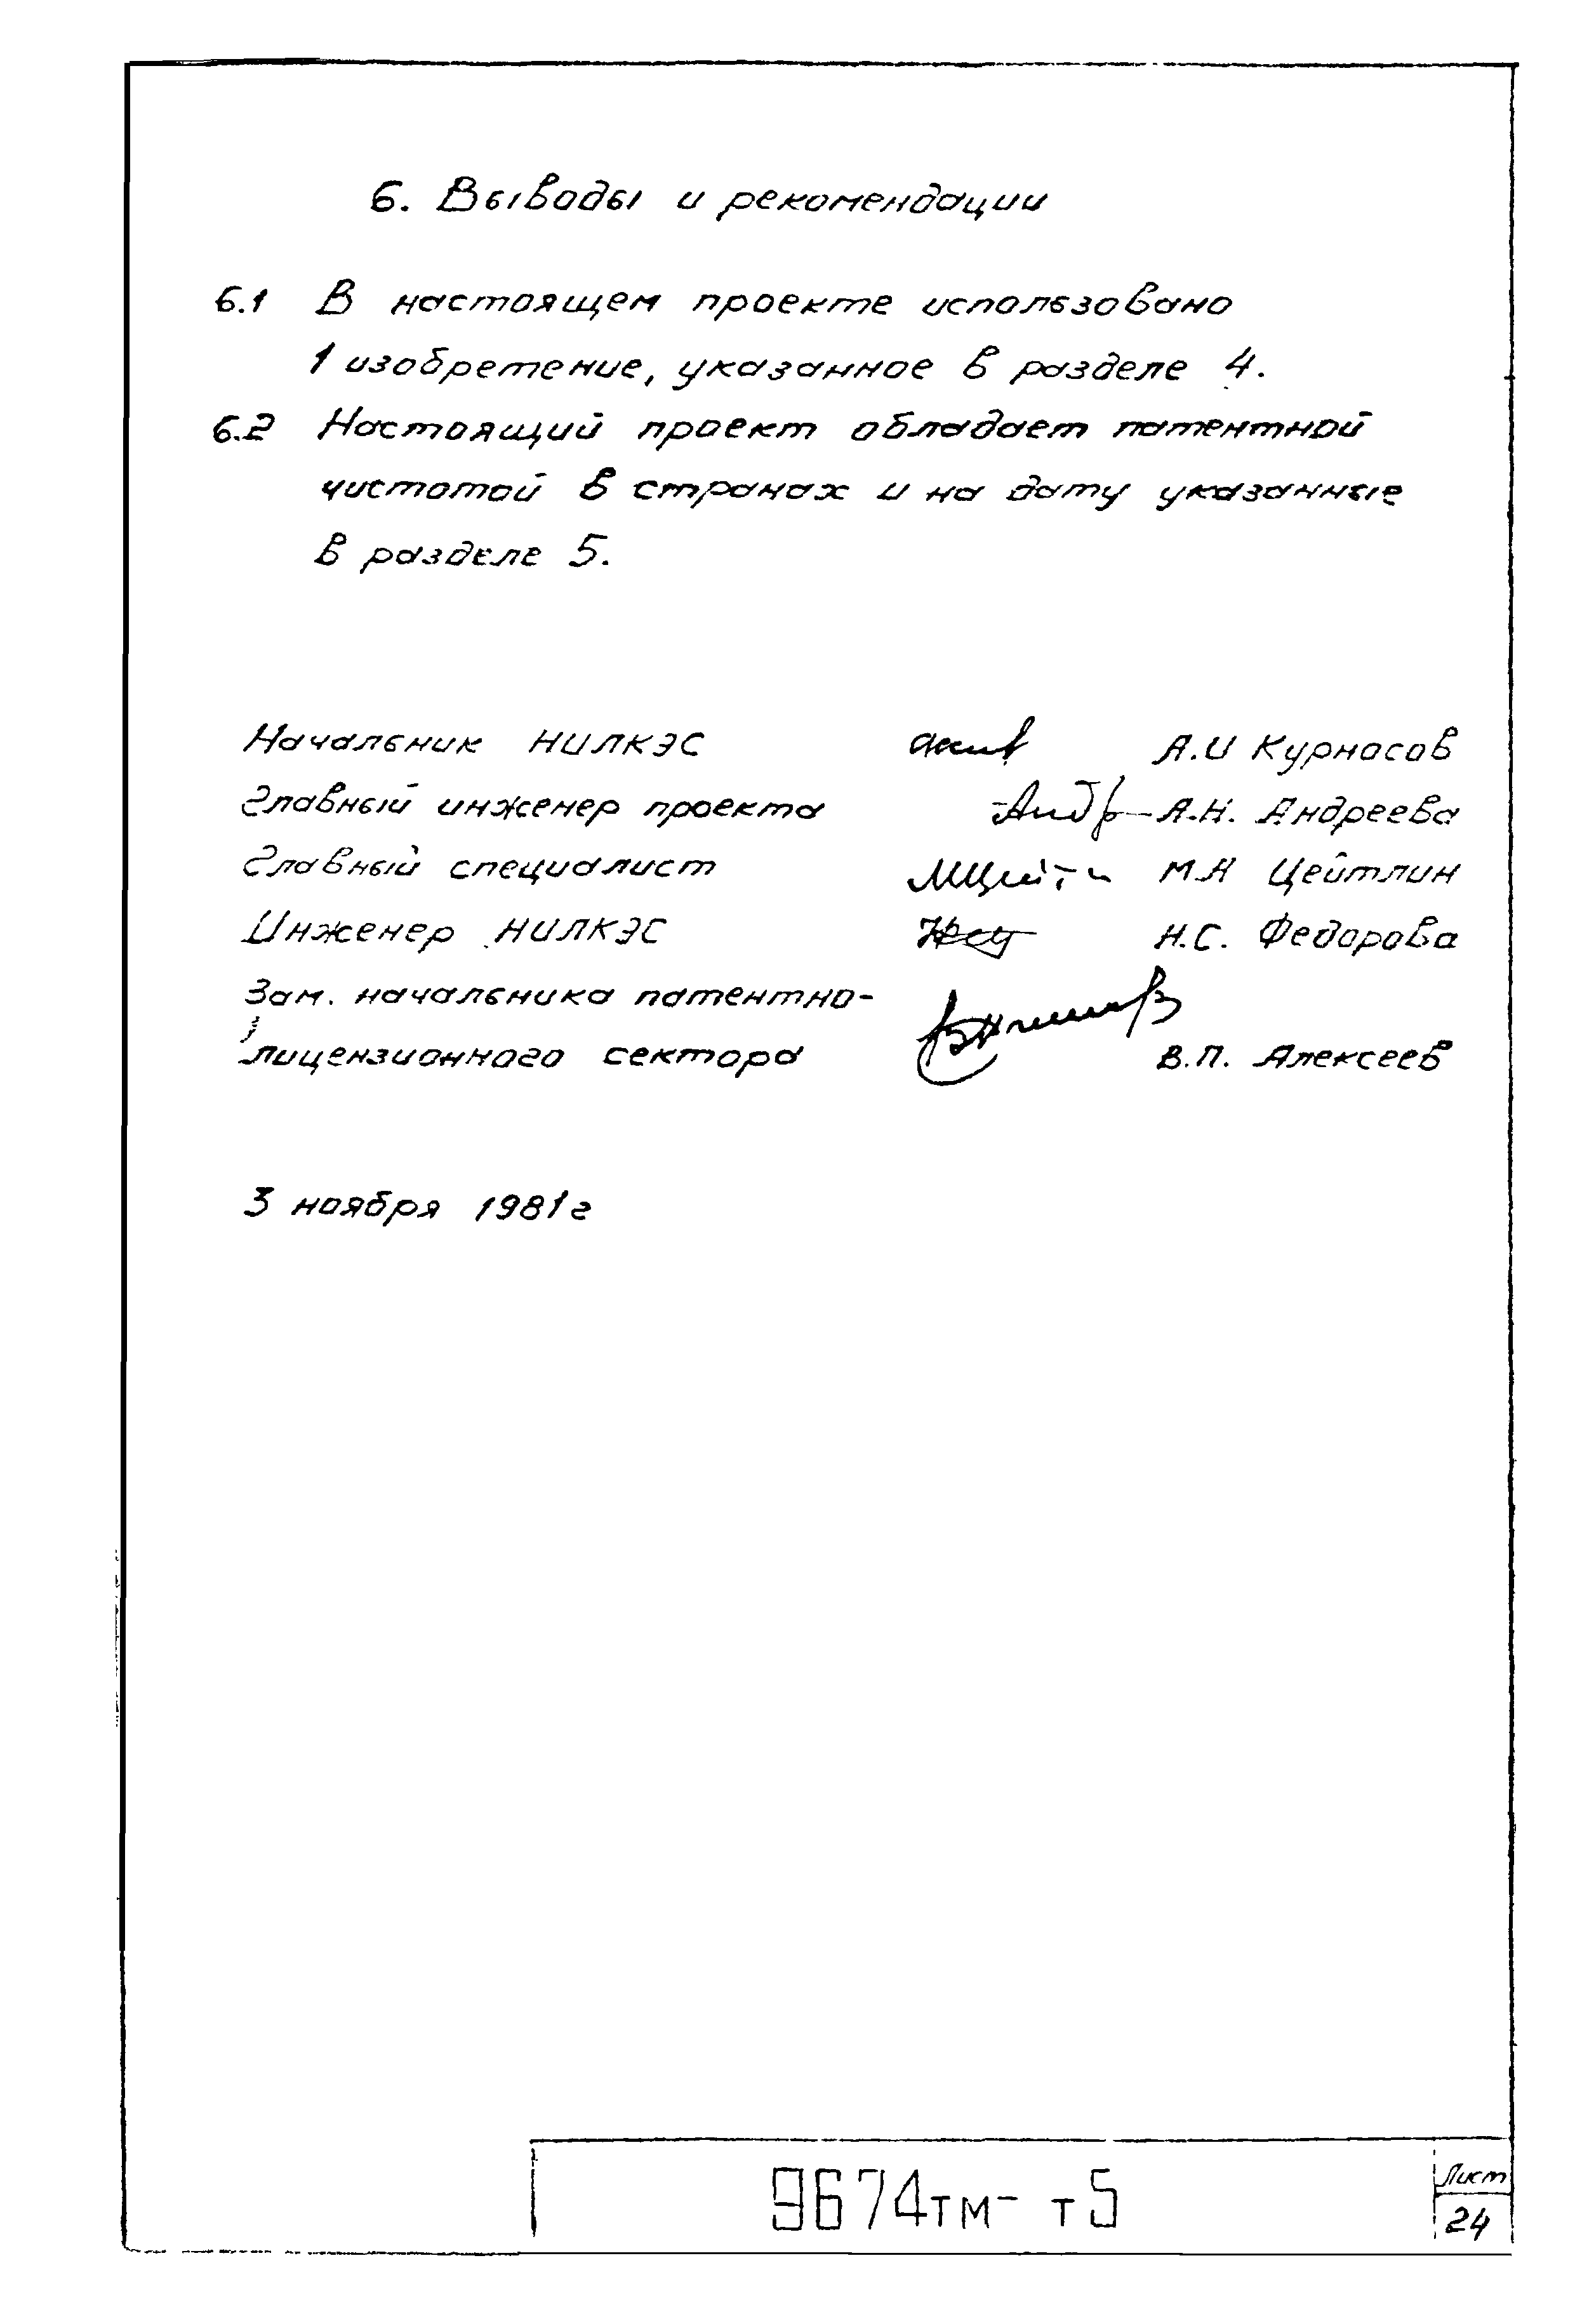 6. Выводы и рекомендации
6.1 В настоящем проекте использовано
1 изобретение, указанное в разделе 4.
6.2 Настоящий проект обладает патентной
чистотой в странах и на дату указанные
в разделе 5.
Начальник НИЛКЭС А.И Курносов
Главный инженер проекта А.Н. Андреева
Главный специалист М.А Цейтлин
Инженер НИЛКЭС Н.С. Федорова
Зам. начальника патентно-
лицензионного сектора В.П. Алексеев
3 ноября 1981г
9674тм- т5
Лист
24